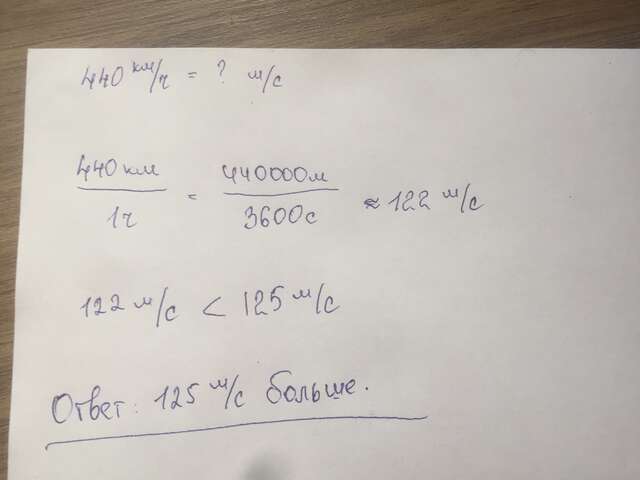 440 км/ч = ? м/с
440 км / 1ч = 440000м / 3600с ≈ 122 м/с
122 м/с < 125 м/с
Ответ: 125 м/с больше.